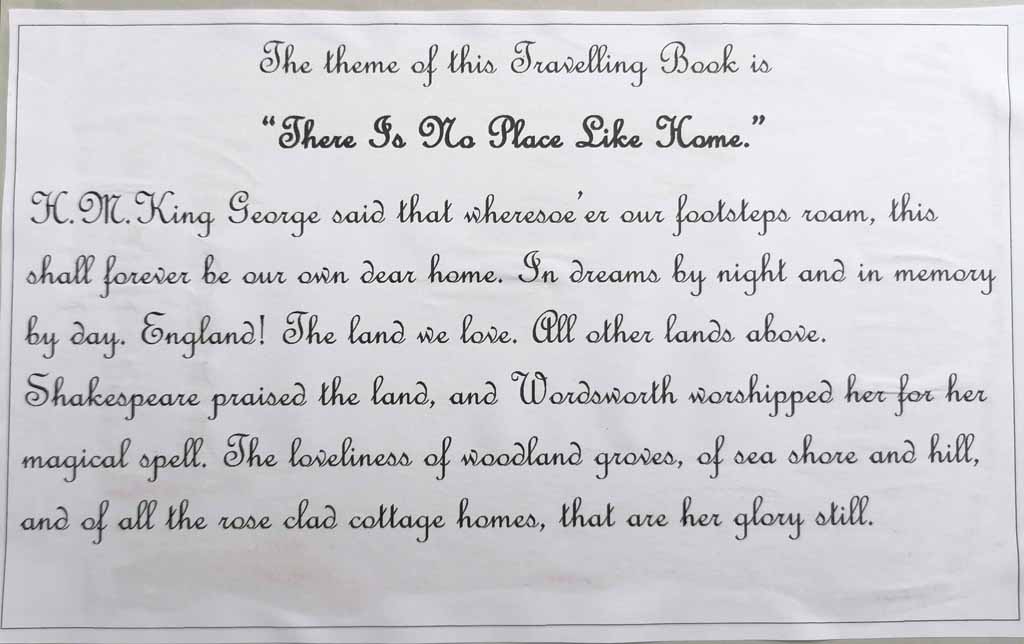 The theme of this Travelling Book is
“There Is No Place Like Home.”
H.M.King George said that wheresoe'er our footsteps roam, this
shall forever be our own dear home. In dreams by night and in memory
by day. England! The land we love. All other lands above.
Shakespeare praised the land, and Wordsworth worshipped her for her
magical spell. The loveliness of woodland groves, of sea shore and hill,
and of all the rose clad cottage homes, that are her glory still.